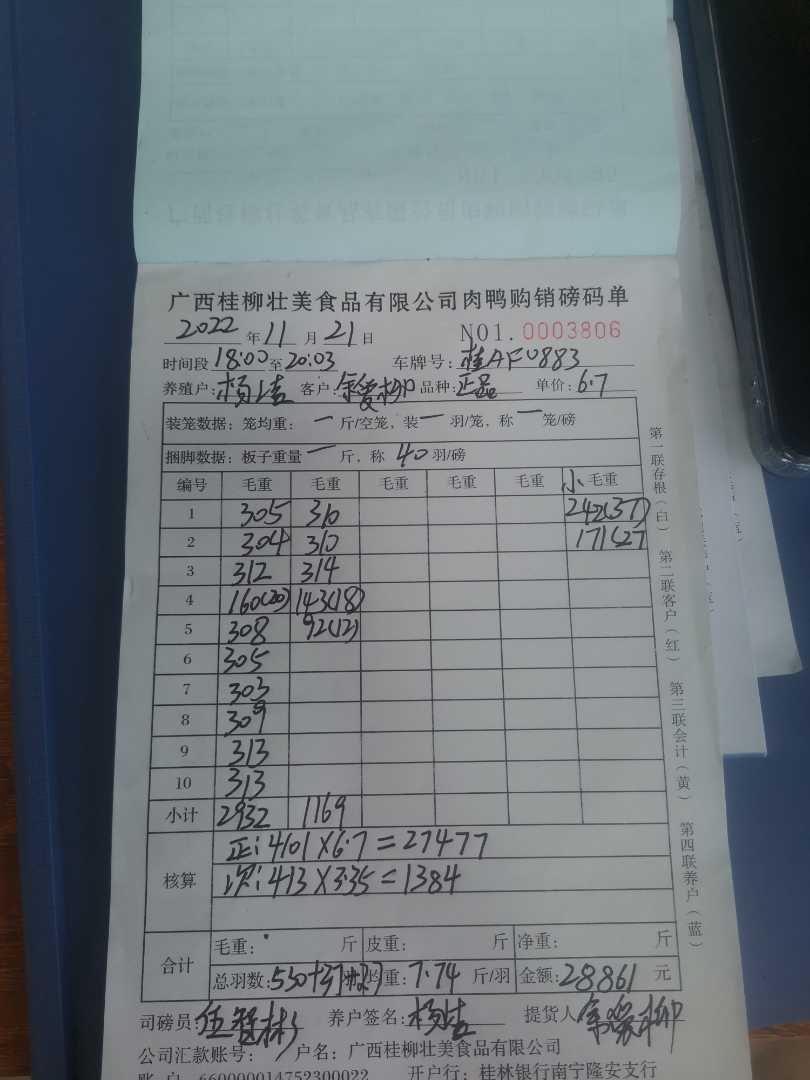 广西桂柳壮美食品有限公司肉鸭购销磅码单
2022年11月21日 NO1.0003806
时间段18:00至20:03 车牌号:桂AF0883
养殖户:杨洁 客户:余爱柳 品种:正品 单价:6.7
装笼数据:笼均重:一斤/空笼,装一羽/笼,称一笼/磅
捆脚数据:板子重量一斤,称40羽/磅
编号 毛重 毛重 毛重 毛重 毛重 小毛重
1 305 310 242(37)
2 304 310 171(27
3 312 314
4 160(20) 143(18)
5 308 92(12)
6 305
7 303
8 309
9 313
10 313
小计 2932 1169
核算 正:4101×6.7=27477
次:413×3.35=1384
合计 毛重: 斤 皮重: 斤 净重: 斤
总羽数:530+37+27 均重:7.74斤/羽 金额:28861元
司磅员: 养户签名:杨洁 提货人
公司汇款账号: 户名:广西桂柳壮美食品有限公司
账户 660000014752300022 开户行:桂林银行南宁隆安支行
第一联存根(白) 第二联客户(红) 第三联会计(黄) 第四联养户(蓝)